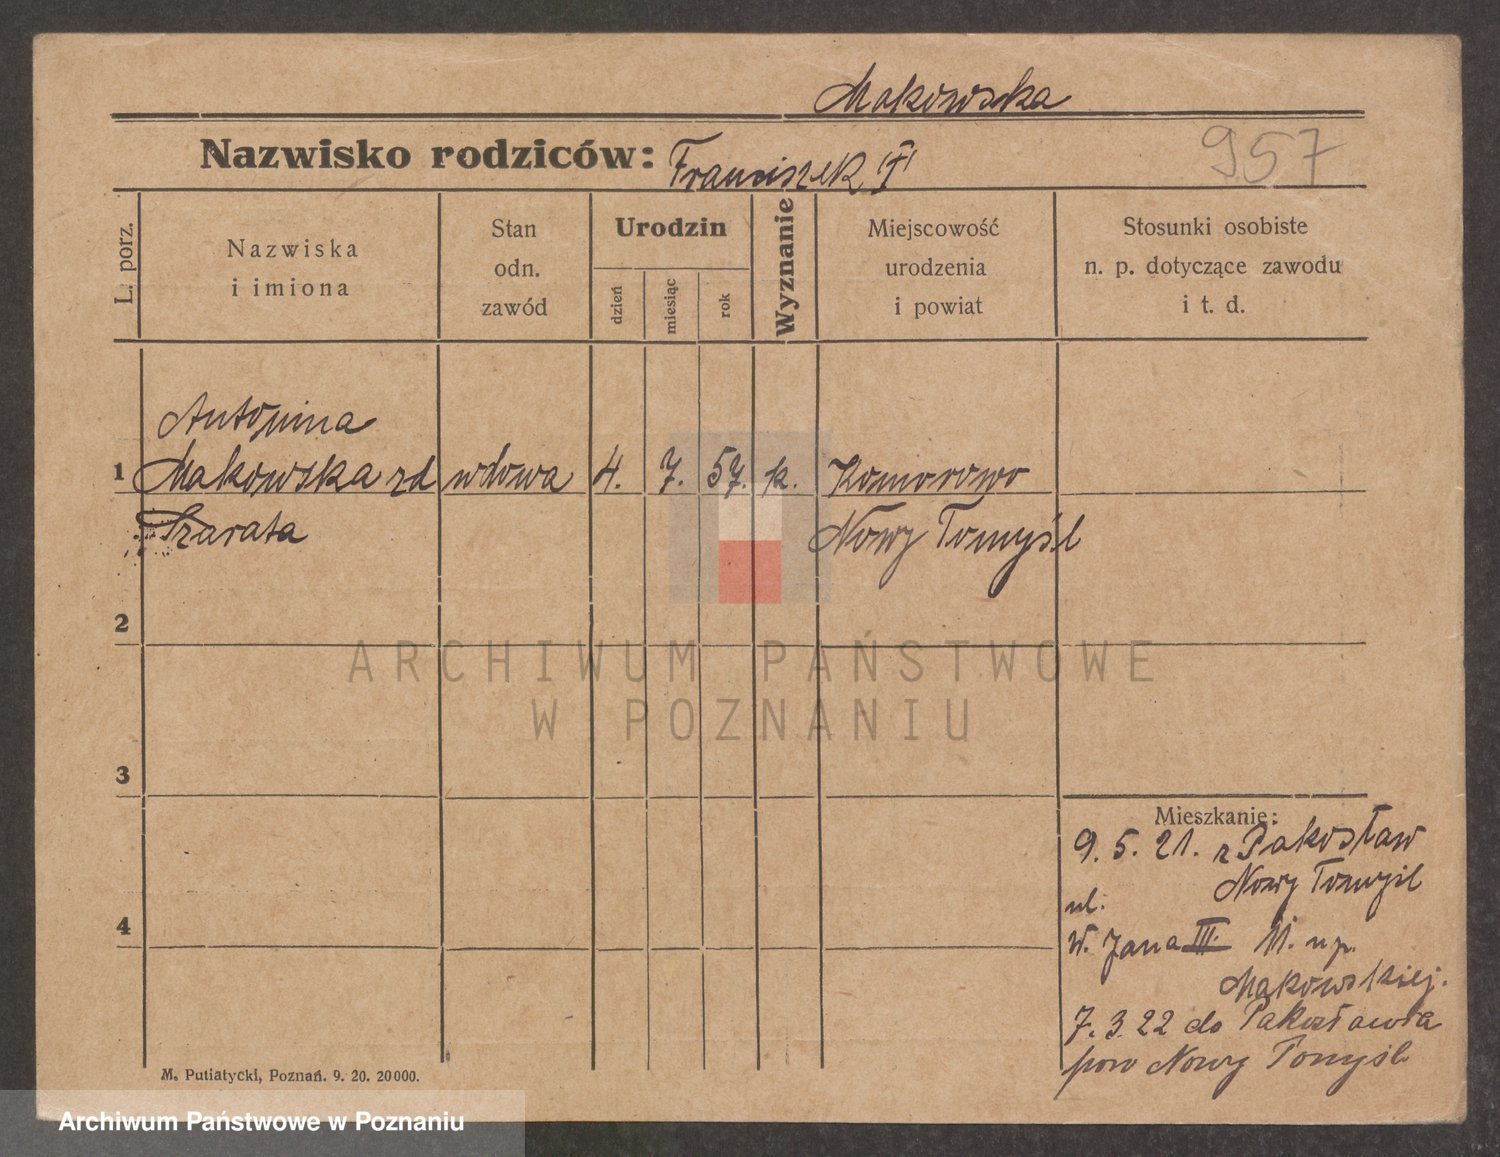 Makowska
Nazwisko rodziców: Franciszek
957
L. porz.
Nazwiska
i imiona
Stan
odn.
zawód
Urodzin
dzień
miesiąc
rok
Wyznanie
Miejscowość
urodzenia
i powiat
Stosunki osobiste
n. p. dotyczące zawodu
i t. d.
Antonina
1 Makowska zd wdowa 4. 7. 57. k. Komorowo
Szarata
Nowy Tomyśl
2
ARCHIWUM PAŃSTWOWE
W POZNANIU
3
Mieszkanie:
9. 5. 21. z Pakosław
Nowy Tomyśl
ul.
4
W. Jana III. 11. u p.
Makowskiej.
7. 3. 22 do Pakosławia
pow Nowy Tomyśl
M. Putiatycki, Poznań. 9. 20. 20000.
Archiwum Państwowe w Poznaniu